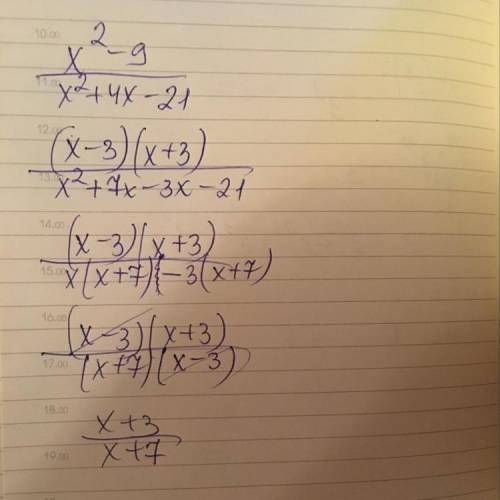 10.00
x² - 9
11.00
x² + 4x - 21
12.00
(x - 3)(x + 3)
13.00
x² + 7x - 3x - 21
14.00
(x - 3)(x + 3)
15.00
x(x + 7) - 3(x + 7)
16.00
(x - 3)(x + 3)
17.00
(x + 7)(x - 3)
18.00
x + 3
19.00
x + 7